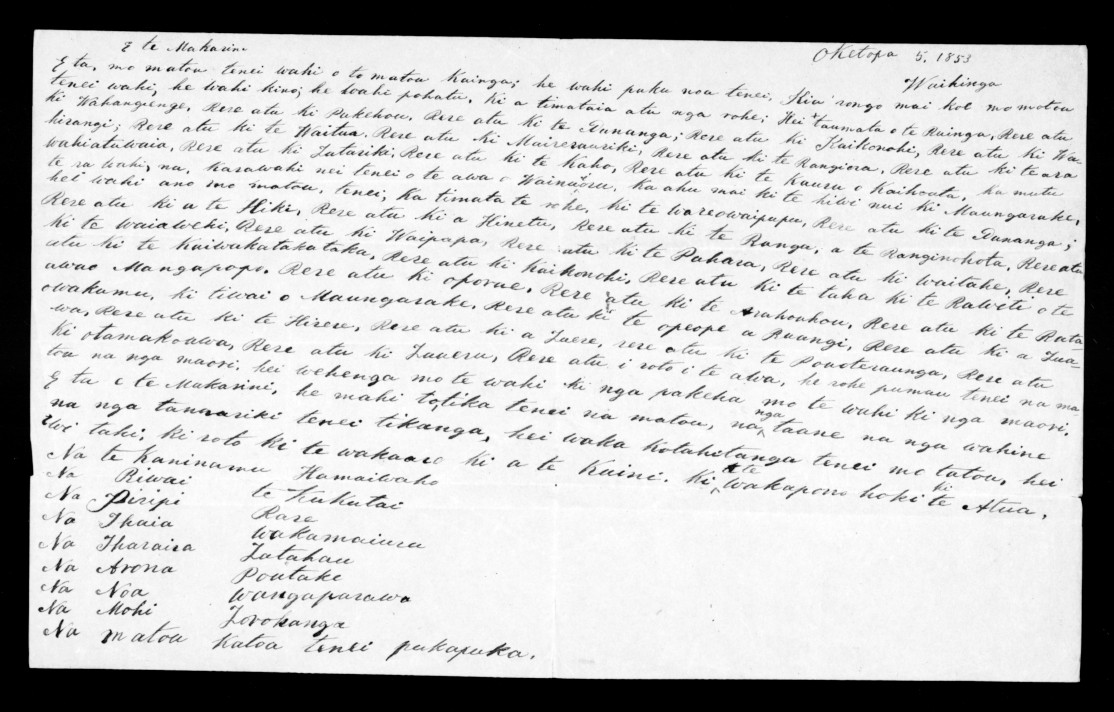 E te Makarini
Oketopa 5, 1853
Waihinga
E ta, mo matou tenei wahi o to matou kainga; he wahi paku noa tenei, Kia rongo mai koe mo matou
tenei wahi, he wahi kino; he wahi pohatu, Ki a timataia atu nga rohe; Hei taumata o te Ruinga, Rere atu
ki Wahangienge, Rere atu ki Pukehou, Rere atu ki te Aunanga; Rere atu ki Kaikonohi, Rere atu ki Wa-
hirangi; Rere atu ki te Waitua, Rere atu ki Mairerauriki, Rere atu ki te Rangiora, Rere atu ki te ara
wahiatawaia, Rere atu ki Tutariki, Rere atu ki te Kaho, Rere atu ki te Kauru o Kaihouta, ka mutu
te ra wahi, na, karawahi nei tenei o te awa o Wainuoru, ka ahu mai ki te hiwi nui ki Maungarake,
hei wahi ano mo matou, tenei, ka timata te rohe, ki te wareowaipupu, Rere atu ki te Aunanga;
Rere atu ki a te Hiki, Rere atu ki a Hinetu, Rere atu ki te Ranga, a te Ranginohota, Rere atu
ki te waiaweki, Rere atu ki Waipapa, Rere atu ki te Pahara, Rere atu ki waitahe, Rere
atu ki te Kaiwakatakataka, Rere atu ki Kaikonohi, Rere atu ki te taha ki te Rawiti o te
awao Mangapopo, Rere atu ki oporue, Rere atu ki te Arahouhou, Rere atu ki te Rata-
owakamu, ki tiwai o Maungarake, Rere atu ki te opeope a Ruangi, Rere atu ki a Tua-
wa, Rere atu ki te Hireru, Rere atu ki a Tuere, rere atu ki te Pouoteraunga, Rere atu
ki otamakoawa, Rere atu ki Taueru, Rere atu i roto i te awa, he rohe pumau tenei na ma
tou na nga maori, hei wehenga mo te wahi ki nga pakeha mo te wahi ki nga maori.
E ta e te Makarini, he mahi totika tenei na matou, na nga taane na nga wahine
na nga tamaariki tenei tikanga, hei waka kotahitanga tenei mo tatou, hei
Ewi tahi, ki roto ki te wakaaro ki a te Kuini. Ki te wakapono hoki ki te Atua.
Na te Kaninamu Hamaiwaho
Na Riwai te Kukutai
Na Piripi Rare
Na Ihaia Wakamaiuru
Na Iharaira Tatahau
Na Arona Poutake
Na Noa Wangaparawa
Na Mohi Torohanga
Na matou katoa tenei pukapuka.